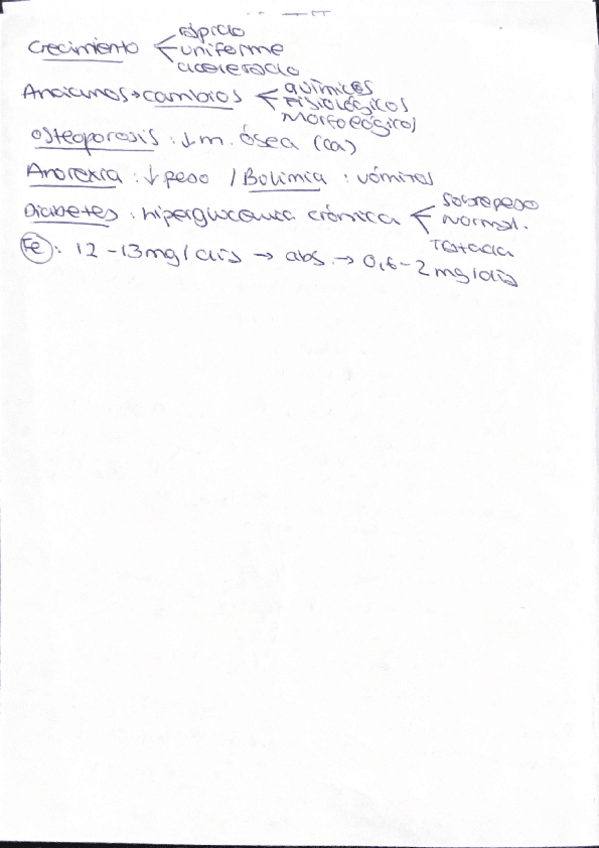 rápido
Crecimiento < uniforme
acelerado
Ancianos → cambios < químicos
Fisiológicos
Morfológicos
Osteoporosis : ↓ m. ósea (Ca)
Anorexia : ↓ peso / Bulimia : vómitos
Diabetes : hiperglucemia crónica < Sobrepeso
Normal.
Tratada
Fe : 12-13 mg/día → abs. → 0,6-2 mg/día